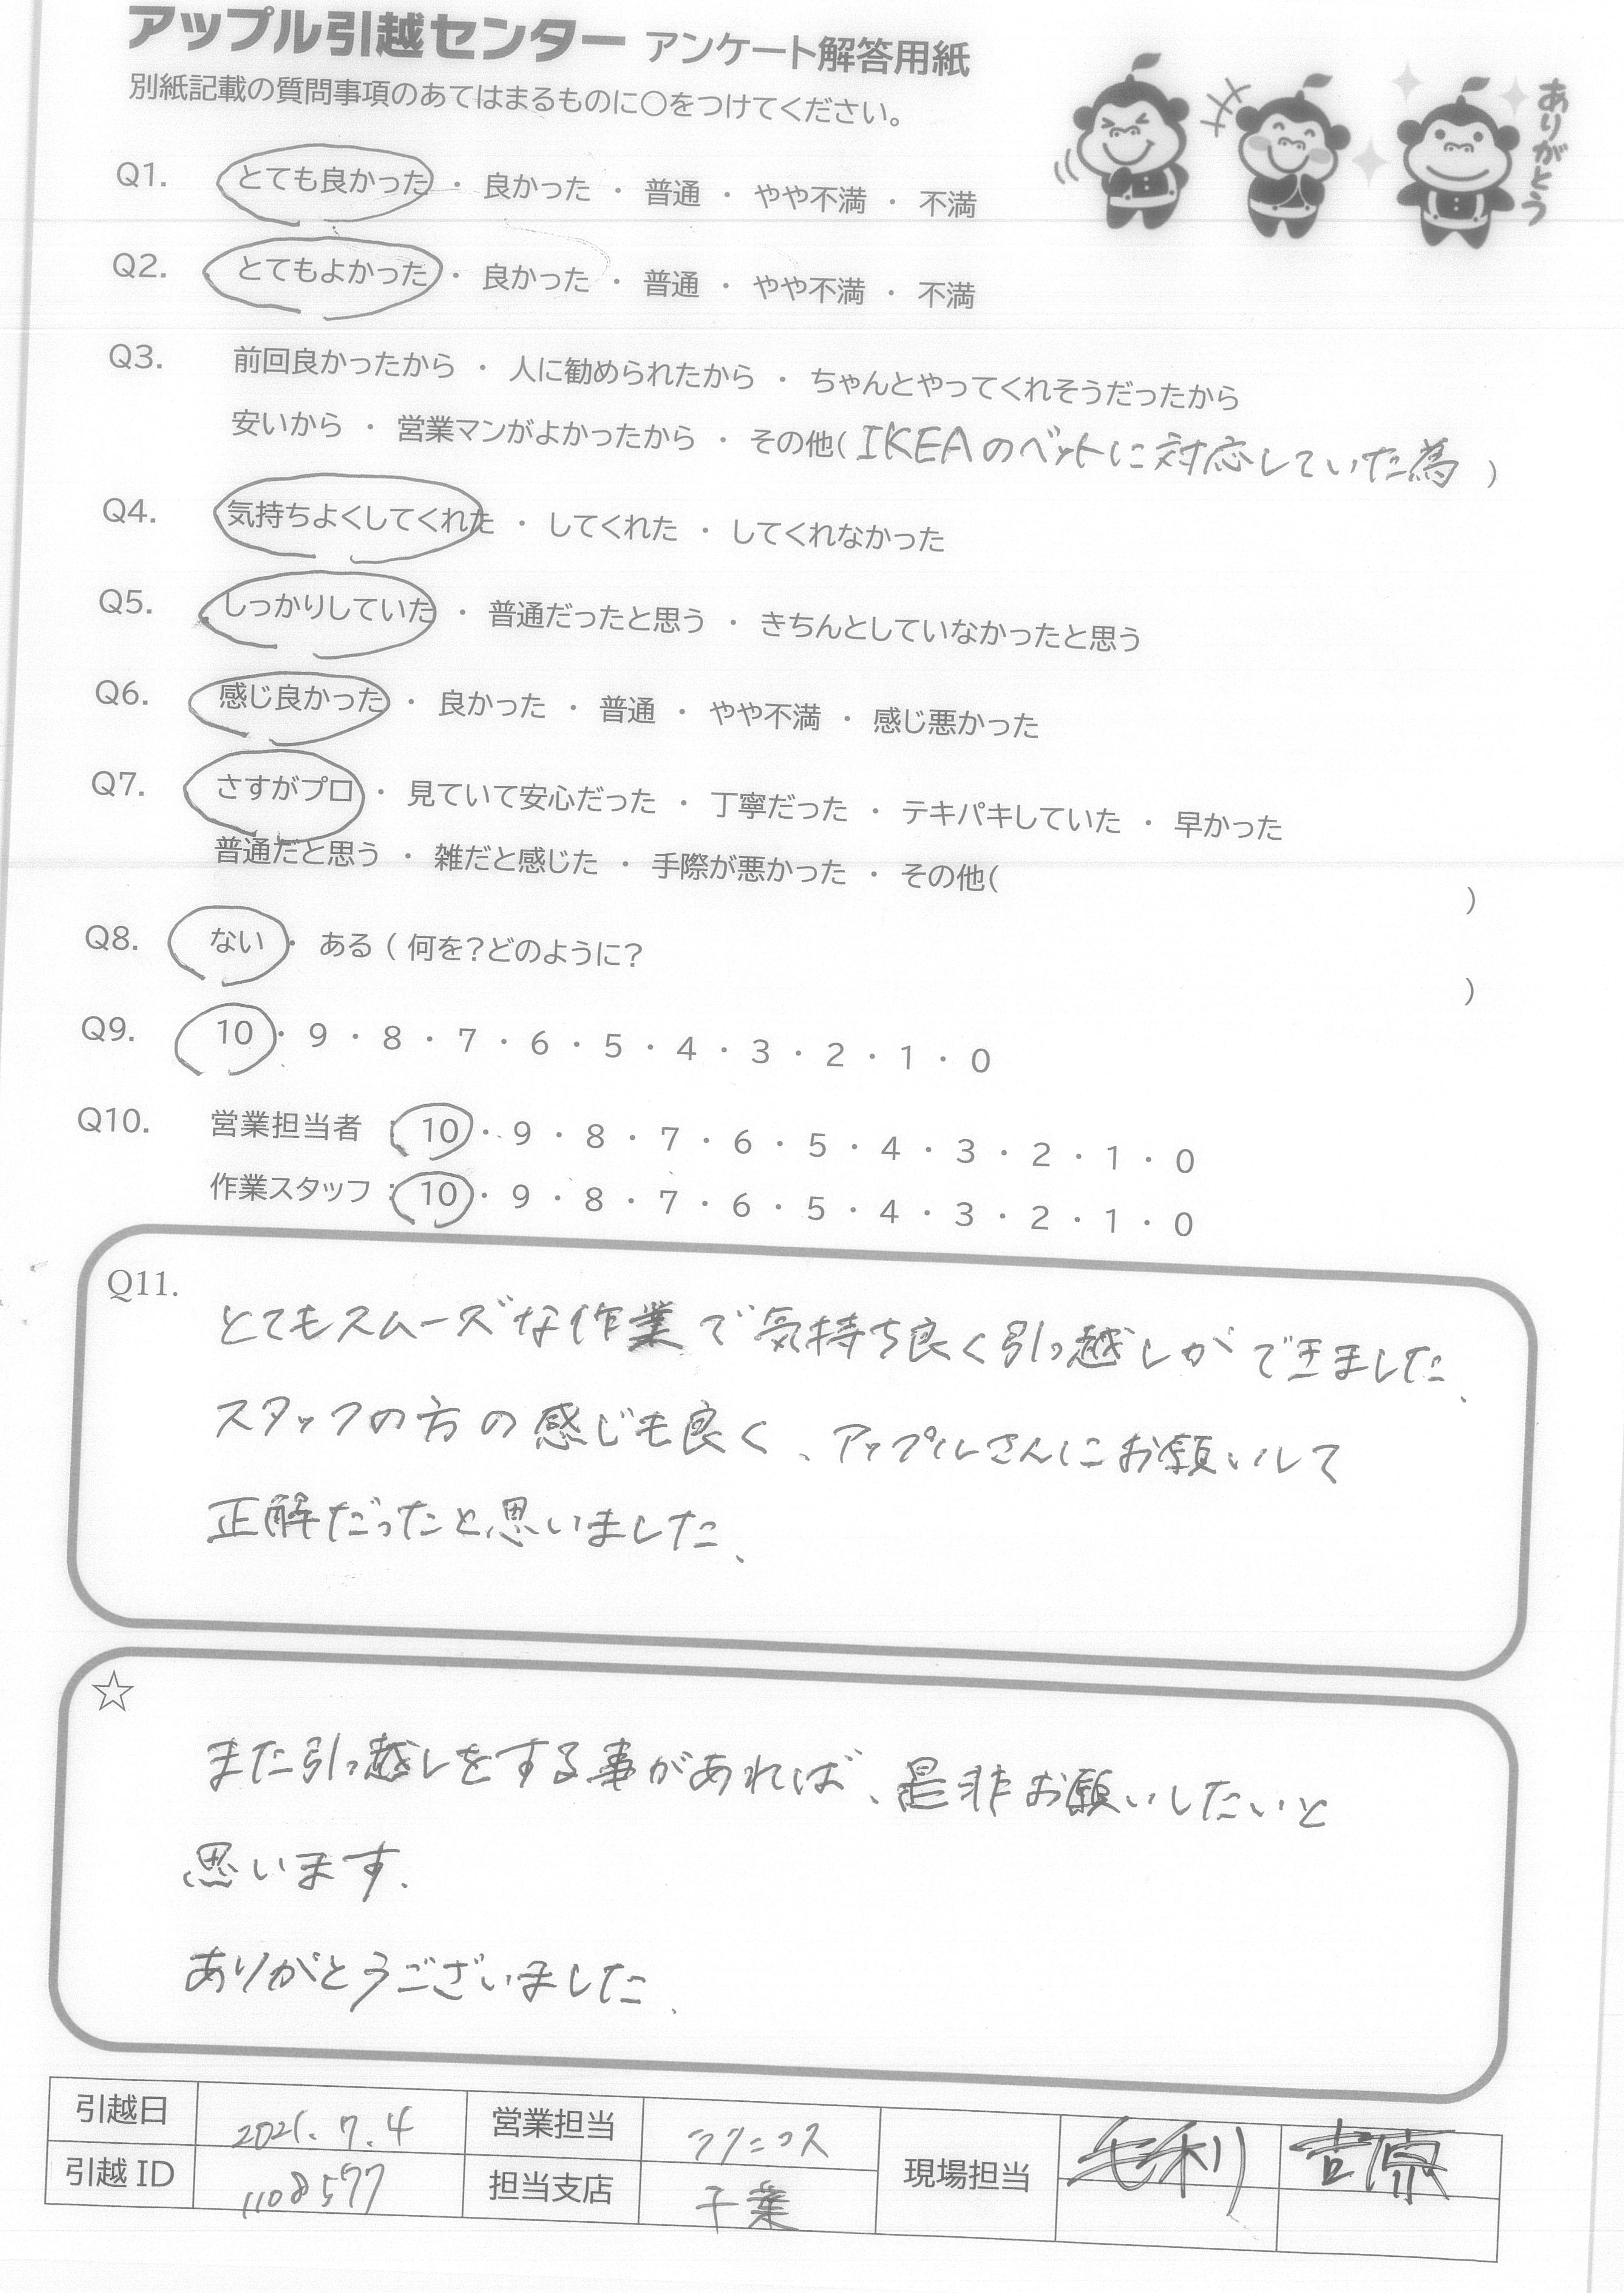 アップル引越センター アンケート解答用紙
別紙記載の質問事項のあてはまるものに○をつけてください。
ありがとう
Q1. とても良かった ・ 良かった ・ 普通 ・ やや不満 ・ 不満
Q2. とてもよかった ・ 良かった ・ 普通 ・ やや不満 ・ 不満
Q3. 前回良かったから ・ 人に勧められたから ・ ちゃんとやってくれそうだったから
安いから ・ 営業マンがよかったから ・ その他( IKEAのベットに対応していた為 )
Q4. 気持ちよくしてくれた ・ してくれた ・ してくれなかった
Q5. しっかりしていた ・ 普通だったと思う ・ きちんとしていなかったと思う
Q6. 感じ良かった ・ 良かった ・ 普通 ・ やや不満 ・ 感じ悪かった
Q7. さすがプロ ・ 見ていて安心だった ・ 丁寧だった ・ テキパキしていた ・ 早かった
普通だと思う ・ 雑だと感じた ・ 手際が悪かった ・ その他( )
Q8. ない ・ ある ( 何を?どのように? )
Q9. 10 ・ 9 ・ 8 ・ 7 ・ 6 ・ 5 ・ 4 ・ 3 ・ 2 ・ 1 ・ 0
Q10. 営業担当者 : 10 ・ 9 ・ 8 ・ 7 ・ 6 ・ 5 ・ 4 ・ 3 ・ 2 ・ 1 ・ 0
作業スタッフ : 10 ・ 9 ・ 8 ・ 7 ・ 6 ・ 5 ・ 4 ・ 3 ・ 2 ・ 1 ・ 0
Q11.
とてもスムーズな作業で気持ち良く引っ越しができました、
スタッフの方の感じも良く、アップルさんにお願いして
正解だったと思いました、
☆
また引っ越しをする事があれば、是非お願いしたいと
思います.
ありがとうございました.
引越日 2021.7.4 営業担当 現場担当 毛利 吉原
引越ID 1108577 担当支店 千葉